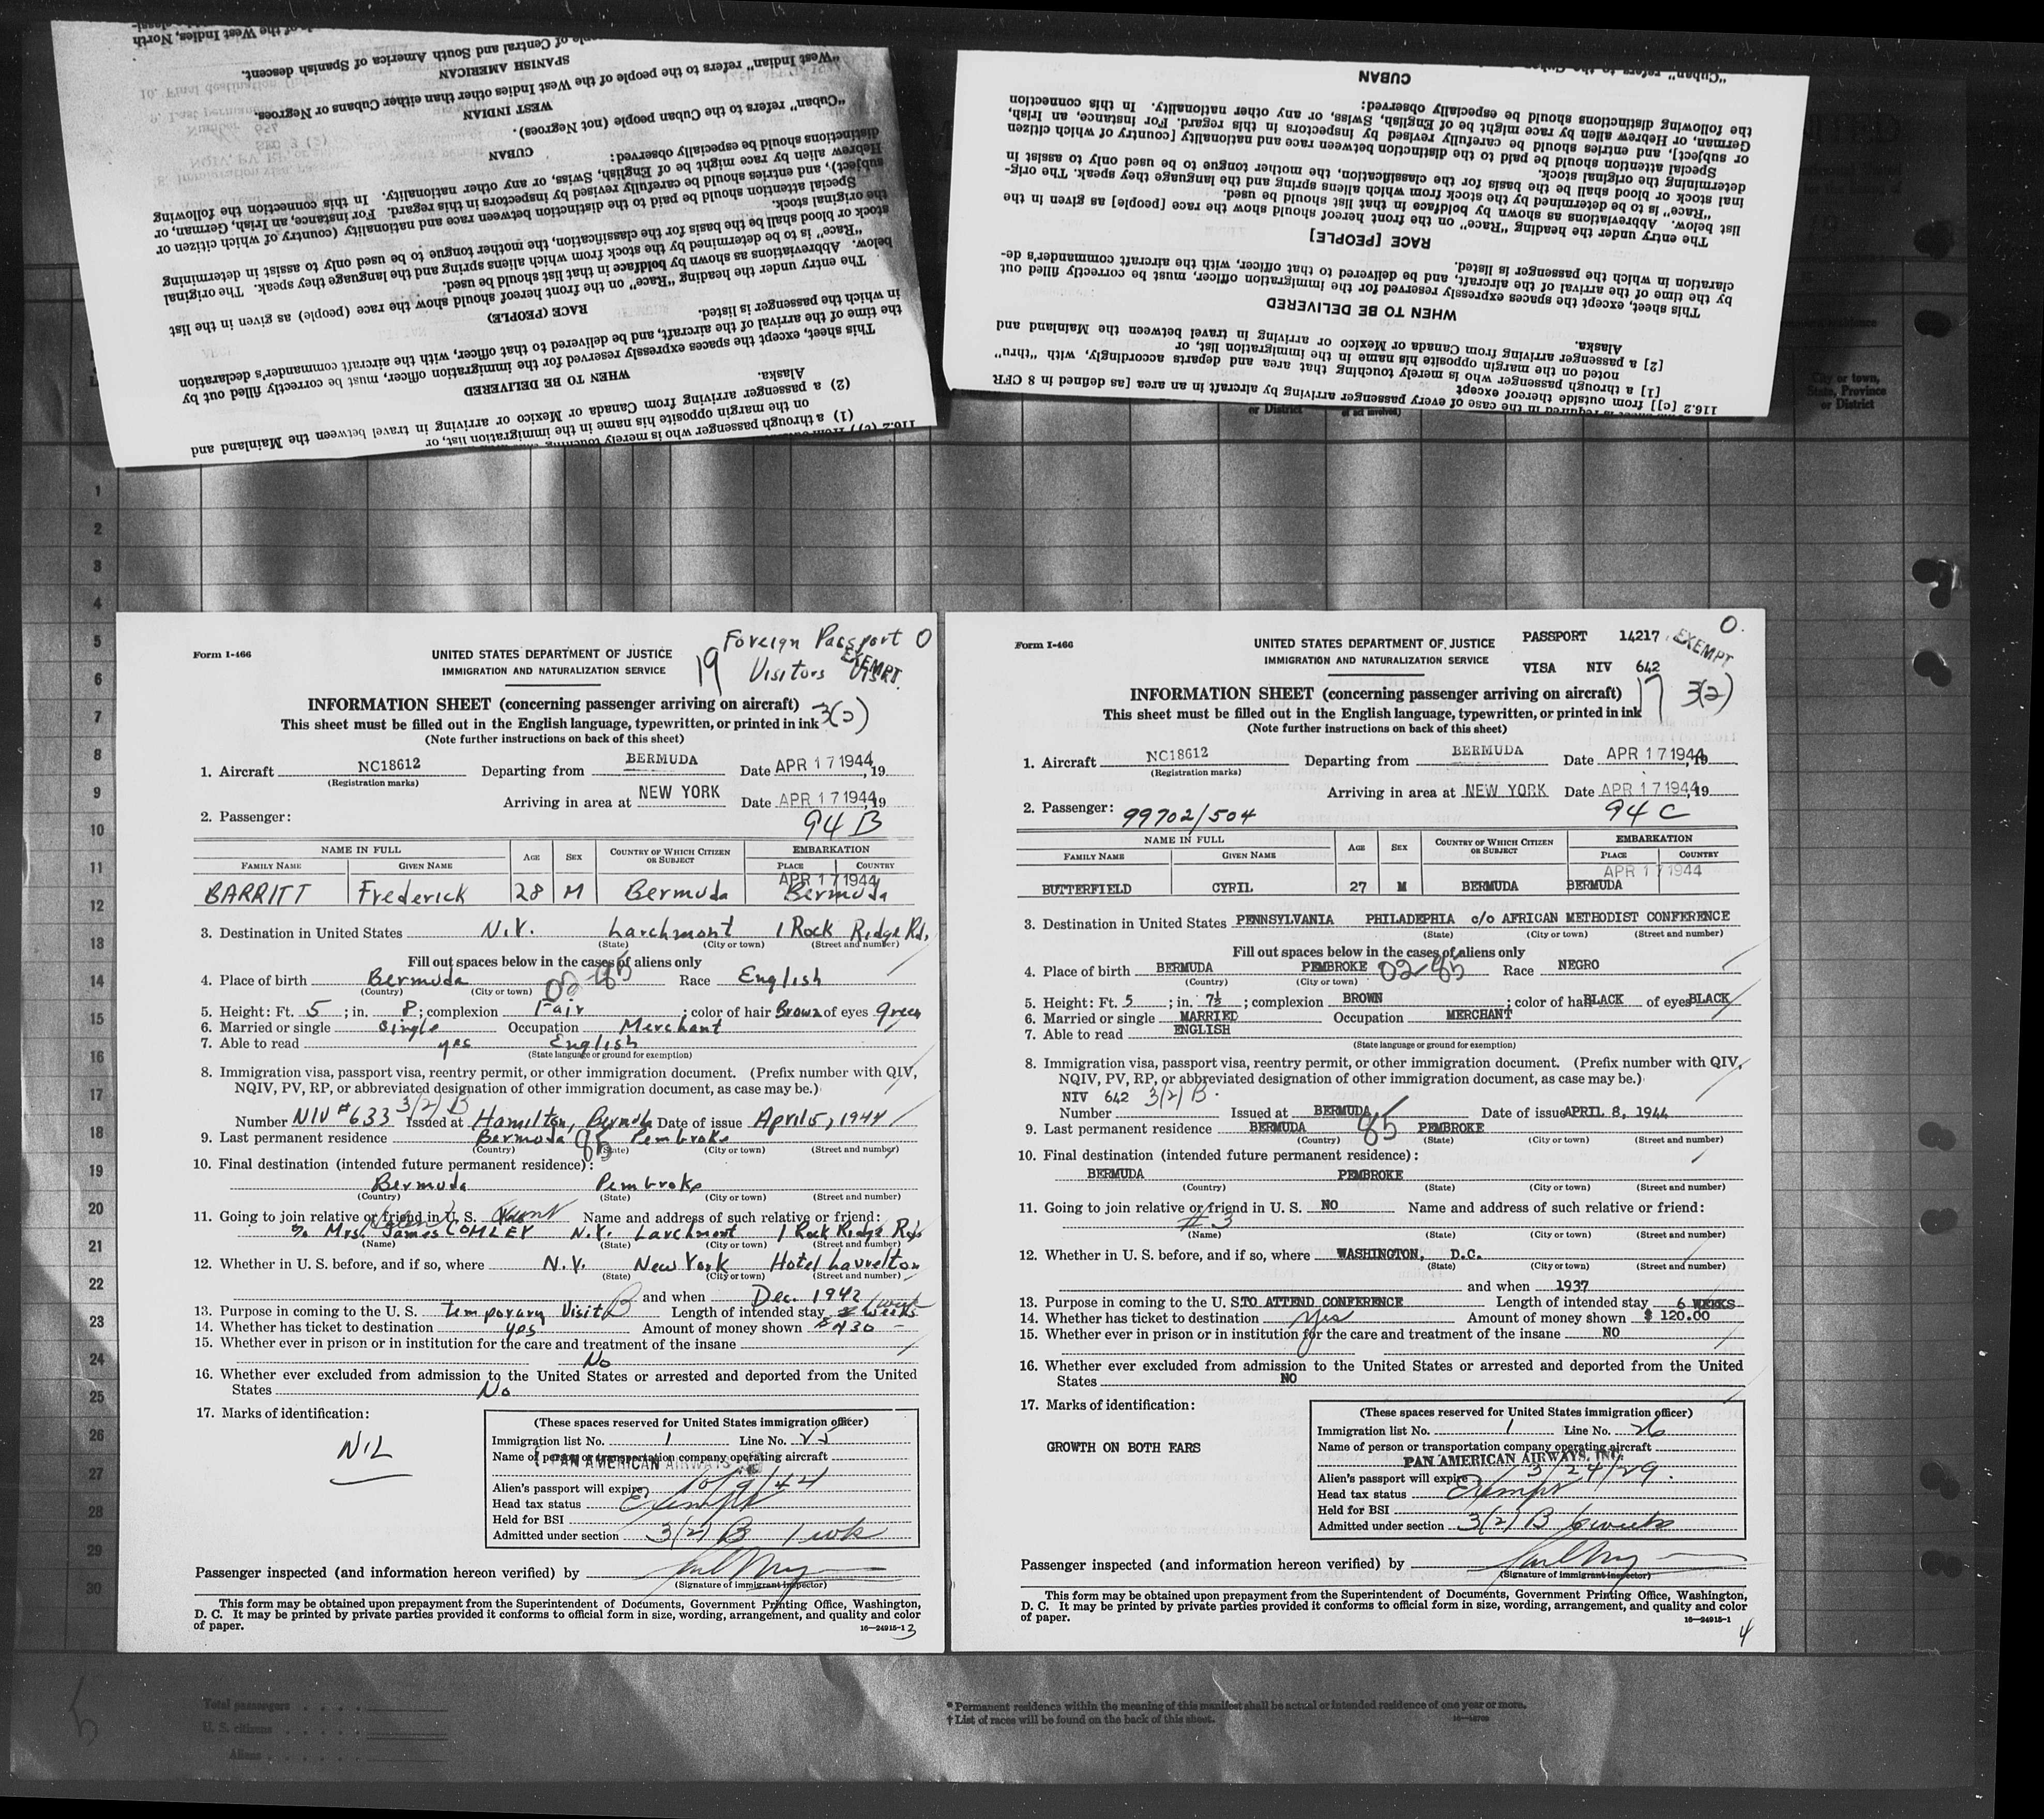 of the West Indies, North
people of Central and South America of Spanish descent.
SPANISH AMERICAN
"West Indian" refers to the people of the West Indies other than either Cubans or Negroes.
WEST INDIAN
"Cuban" refers to the Cuban people (not Negroes).
CUBAN
distinctions should be especially observed:
Hebrew alien by race might be of English, Swiss, or any other nationality. In this connection the following
subject), and entries should be carefully revised by inspectors in this regard. For instance, an Irish, German, or
Special attention should be paid to the distinction between race and nationality (country of which citizen or
the original stock.
stock or blood shall be the basis for the classification, the mother tongue to be used only to assist in determining
"Race" is to be determined by the stock from which aliens spring and the language they speak. The original
below. Abbreviations as shown by boldface in that list should be used.
The entry under the heading "Race" on the front hereof should show the race (people) as given in the list
RACE (PEOPLE)
in which the passenger is listed.
the time of the arrival of the aircraft, and be delivered to that officer, with the aircraft commander's declaration
This sheet, except the spaces expressly reserved for the immigration officer, must be correctly filled out by
WHEN TO BE DELIVERED
Alaska.
(2) a passenger arriving from Canada or Mexico or arriving in travel between the Mainland and
on the margin opposite his name in the immigration list, or
(1) a through passenger who is merely touching
116.2 (c))
"Cuban" refers to the Cuban
CUBAN
the following distinctions should be especially observed:
German, or Hebrew alien by race might be of English, Swiss, or any other nationality. In this connection
or subject], and entries should be carefully revised by inspectors in this regard. For instance, an Irish,
Special attention should be paid to the distinction between race and nationality [country of which citizen
determining the original stock.
inal stock or blood shall be the basis for the classification, the mother tongue to be used only to assist in
"Race" is to be determined by the stock from which aliens spring and the language they speak. The orig-
list below. Abbreviations as shown by boldface in that list should be used.
The entry under the heading "Race" on the front hereof should show the race [people] as given in the
RACE [PEOPLE]
claration in which the passenger is listed.
by the time of the arrival of the aircraft, and be delivered to that officer, with the aircraft commander's de-
This sheet, except the spaces expressly reserved for the immigration officer, must be correctly filled out
WHEN TO BE DELIVERED
Alaska.
[2] a passenger arriving from Canada or Mexico or arriving in travel between the Mainland and
noted on the margin opposite his name in the immigration list, or
[1] a through passenger who is merely touching that area and departs accordingly, with "thru"
116.2 [c]] from outside thereof except
required in the case of every passenger arriving by aircraft in an area [as defined in 8 CFR
City or town,
State, Province
or District
1
2
3
4
5
6
7
8
9
10
11
12
13
14
15
16
17
18
19
20
21
22
23
24
25
26
27
28
29
30
Form I-466
UNITED STATES DEPARTMENT OF JUSTICE
IMMIGRATION AND NATURALIZATION SERVICE
19 Foreign Passport 0
Visitors Visa
EXEMPT
INFORMATION SHEET (concerning passenger arriving on aircraft) 3(2)
This sheet must be filled out in the English language, typewritten, or printed in ink
(Note further instructions on back of this sheet)
1. Aircraft NC18612 Departing from BERMUDA Date APR 17 1944, 19
(Registration marks)
Arriving in area at NEW YORK Date APR 17 1944, 19
2. Passenger: 94 B
NAME IN FULL AGE SEX COUNTRY OF WHICH CITIZEN OR SUBJECT EMBARKATION
FAMILY NAME GIVEN NAME PLACE COUNTRY
APR 17 1944
BARRITT Frederick 28 M Bermuda Bermuda
3. Destination in United States N.Y. Larchmont 1 Rock Ridge Rd.
(State) (City or town) (Street and number)
Fill out spaces below in the cases of aliens only
4. Place of birth Bermuda 02-85 Race English
(Country) (City or town)
5. Height: Ft. 5 ; in. 8 ; complexion Fair ; color of hair Brown of eyes green
6. Married or single single Occupation Merchant
7. Able to read yes English
(State language or ground for exemption)
8. Immigration visa, passport visa, reentry permit, or other immigration document. (Prefix number with QIV,
NQIV, PV, RP, or abbreviated designation of other immigration document, as case may be.)
3/2) B
Number NIV #633 Issued at Hamilton, Bermuda Date of issue April 5, 1944
9. Last permanent residence Bermuda 85 Pembroke
(Country) (State) (City or town) (Street and number)
10. Final destination (intended future permanent residence):
Bermuda Pembroke
(Country) (State) (City or town) (Street and number)
11. Going to join relative or friend in U. S. Aunt Name and address of such relative or friend:
% Mrs. James COMLEY N.Y. Larchmont 1 Rock Ridge Rd.
(Name) (State) (City or town) (Street and number)
12. Whether in U. S. before, and if so, where N.Y. New York Hotel Laurelton
(State) (City or town) (Street and number)
and when Dec. 1942
13. Purpose in coming to the U. S. Temporary Visit B Length of intended stay 1 week
14. Whether has ticket to destination yes Amount of money shown
15. Whether ever in prison or in institution for the care and treatment of the insane
No
16. Whether ever excluded from admission to the United States or arrested and deported from the United
States No
17. Marks of identification:
NIL
(These spaces reserved for United States immigration officer)
Immigration list No. 1 Line No. 25
Name of person or transportation company operating aircraft
PAN AMERICAN AIRWAYS
Alien's passport will expire 10/9/44
Head tax status Exempt
Held for BSI
Admitted under section 3(2) B 1 wk
Passenger inspected (and information hereon verified) by
(Signature of immigrant inspector)
This form may be obtained upon prepayment from the Superintendent of Documents, Government Printing Office, Washington,
D. C. It may be printed by private parties provided it conforms to official form in size, wording, arrangement, and quality and color
of paper.
16—24915-1
3
Form I-466
UNITED STATES DEPARTMENT OF JUSTICE
IMMIGRATION AND NATURALIZATION SERVICE
PASSPORT 14217
VISA NIV 642
0.
EXEMPT
INFORMATION SHEET (concerning passenger arriving on aircraft) 17 3(2)
This sheet must be filled out in the English language, typewritten, or printed in ink
(Note further instructions on back of this sheet)
1. Aircraft NC18612 Departing from BERMUDA Date APR 17 1944, 19
(Registration marks)
Arriving in area at NEW YORK Date APR 17 1944, 19
2. Passenger: 99702/504 94 C
NAME IN FULL AGE SEX COUNTRY OF WHICH CITIZEN OR SUBJECT EMBARKATION
FAMILY NAME GIVEN NAME PLACE COUNTRY
APR 17 1944
BUTTERFIELD CYRIL 27 M BERMUDA BERMUDA
3. Destination in United States PENNSYLVANIA PHILADEPHIA c/o AFRICAN METHODIST CONFERENCE
(State) (City or town) (Street and number)
Fill out spaces below in the cases of aliens only
4. Place of birth BERMUDA PEMBROKE 02-85 Race NEGRO
(Country) (City or town)
5. Height: Ft. 5 ; in. 7½ ; complexion BROWN ; color of hair BLACK of eyes BLACK
6. Married or single MARRIED Occupation MERCHANT
7. Able to read ENGLISH
(State language or ground for exemption)
8. Immigration visa, passport visa, reentry permit, or other immigration document. (Prefix number with QIV,
NQIV, PV, RP, or abbreviated designation of other immigration document, as case may be.)
NIV 642 3/2) B.
Number Issued at BERMUDA Date of issue APRIL 8, 1944
9. Last permanent residence BERMUDA 85 PEMBROKE
(Country) (State) (City or town) (Street and number)
10. Final destination (intended future permanent residence):
BERMUDA PEMBROKE
(Country) (State) (City or town) (Street and number)
11. Going to join relative or friend in U. S. NO Name and address of such relative or friend:
# 3
(Name) (State) (City or town) (Street and number)
12. Whether in U. S. before, and if so, where WASHINGTON, D.C.
(State) (City or town) (Street and number)
and when 1937
13. Purpose in coming to the U. S. TO ATTEND CONFERENCE Length of intended stay 6 WEEKS
14. Whether has ticket to destination Yes Amount of money shown $ 120.00
15. Whether ever in prison or in institution for the care and treatment of the insane NO
16. Whether ever excluded from admission to the United States or arrested and deported from the United
States NO
17. Marks of identification:
GROWTH ON BOTH EARS
(These spaces reserved for United States immigration officer)
Immigration list No. 1 Line No. 26
Name of person or transportation company operating aircraft
PAN AMERICAN AIRWAYS, INC.
Alien's passport will expire 3/24/49.
Head tax status Exempt
Held for BSI
Admitted under section 3(2) B 6 weeks
Passenger inspected (and information hereon verified) by
(Signature of immigrant inspector)
This form may be obtained upon prepayment from the Superintendent of Documents, Government Printing Office, Washington,
D. C. It may be printed by private parties provided it conforms to official form in size, wording, arrangement, and quality and color
of paper.
16—24915-1
4
Total passengers
U. S. citizens
Aliens
* Permanent residence within the meaning of this manifest shall be actual or intended residence of one year or more.
† List of races will be found on the back of this sheet.